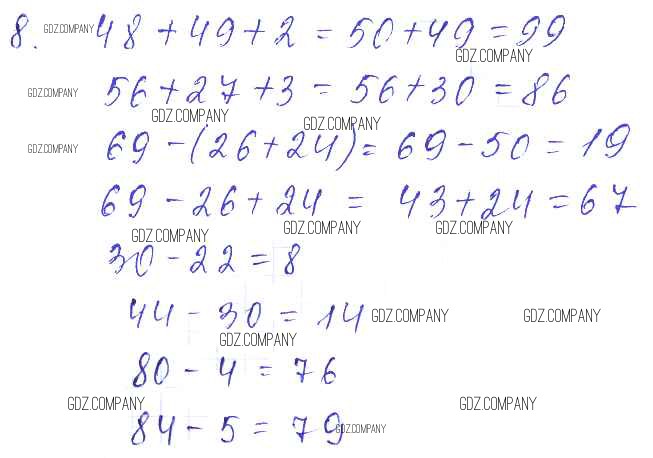 8. GDZ.COMPANY 48 + 49 + 2 = 50 + 49 = 99
GDZ.COMPANY
GDZ.COMPANY 56 + 27 + 3 = 56 + 30 = 86
GDZ.COMPANY GDZ.COMPANY
GDZ.COMPANY 69 - (26 + 24) = 69 - 50 = 19
69 - 26 + 24 = 43 + 24 = 67
GDZ.COMPANY GDZ.COMPANY GDZ.COMPANY
30 - 22 = 8
44 - 30 = 14 GDZ.COMPANY GDZ.COMPANY
GDZ.COMPANY
80 - 4 = 76
GDZ.COMPANY GDZ.COMPANY
84 - 5 = 79 GDZ.COMPANY